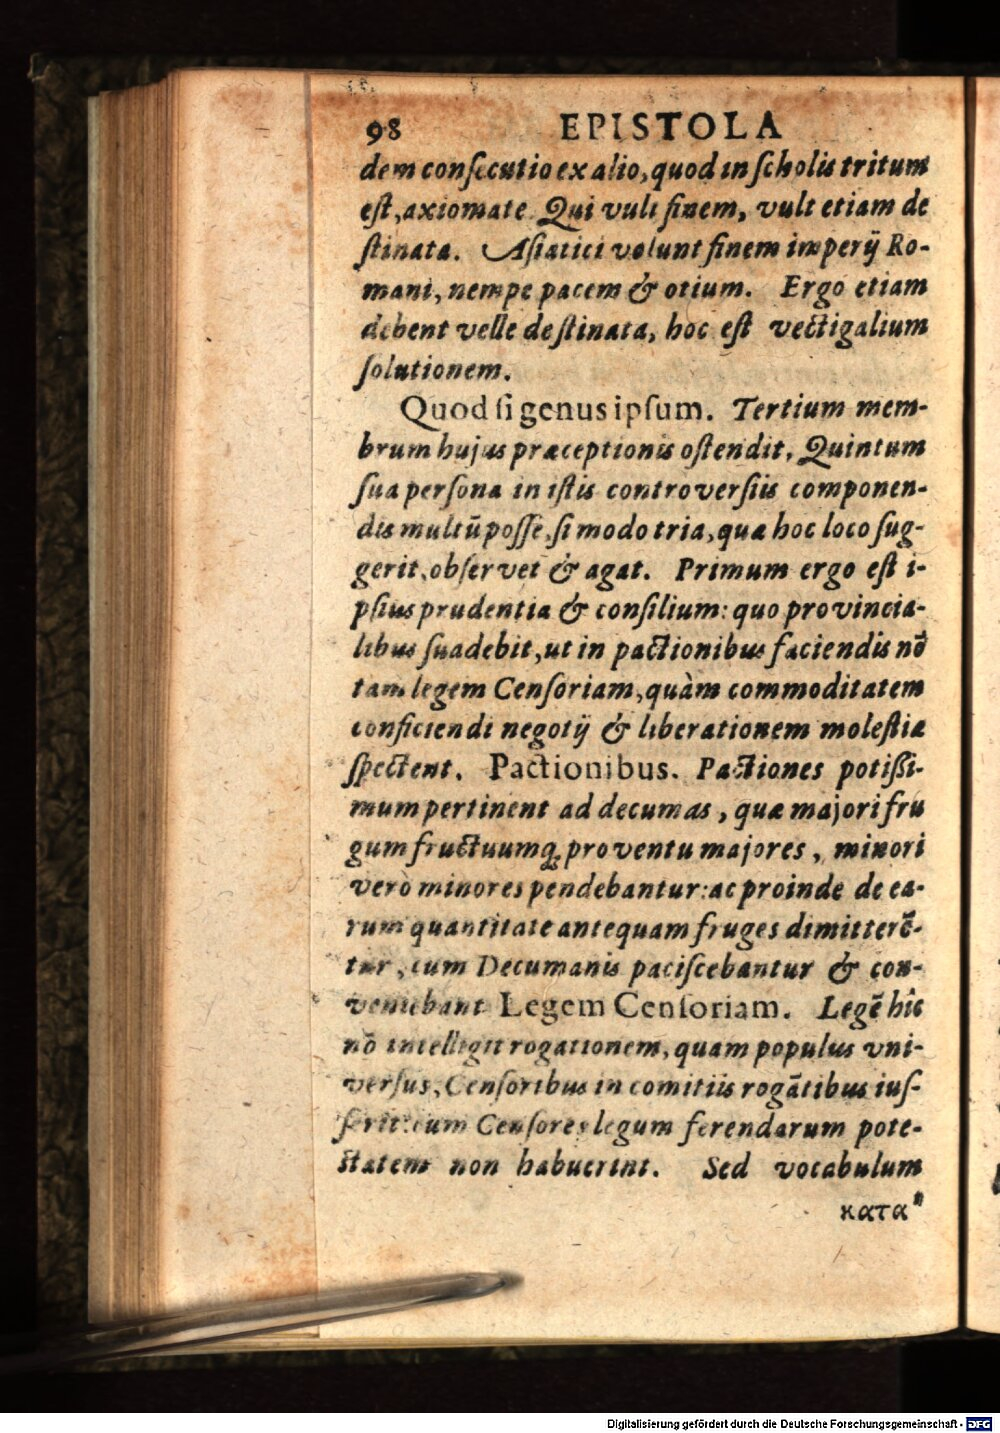 98 EPISTOLA
dem consecutio ex alio, quod in scholis tritum
est, axiomate. Qui vult finem, vult etiam de
stinata. Asiatici volunt finem imperij Ro-
mani, nempe pacem & otium. Ergo etiam
debent velle destinata, hoc est vectigalium
solutionem.
Quod si genus ipsum. Tertium mem-
brum hujus præceptionis ostendit, Quintum
sua persona in istis controversiis componen-
dis multū posse, si modo tria, quæ hoc loco sug-
gerit, observet & agat. Primum ergo est i-
psius prudentia & consilium: quo provincia-
libus suadebit, ut in pactionibus faciendis nō
tam legem Censoriam, quàm commoditatem
conficiendi negotij & liberationem molestiæ
spectent. Pactionibus. Pactiones potißi-
mum pertinent ad decumas, quæ majori fru
gum fructuumq; proventu majores, minori
verò minores pendebantur: ac proinde de ea-
rum quantitate antequam fruges dimitterē-
tur, cum Decumanis paciscebantur & con-
veniebant Legem Censoriam. Legē hîc
nō intelligit rogationem, quam populus vni-
versus, Censoribus in comitiis rogātibus ius-
serit: cum Censores legum ferendarum pote-
statem non habuerint. Sed vocabulum
κατα"
Digitalisierung gefördert durch die Deutsche Forschungsgemeinschaft - DFG